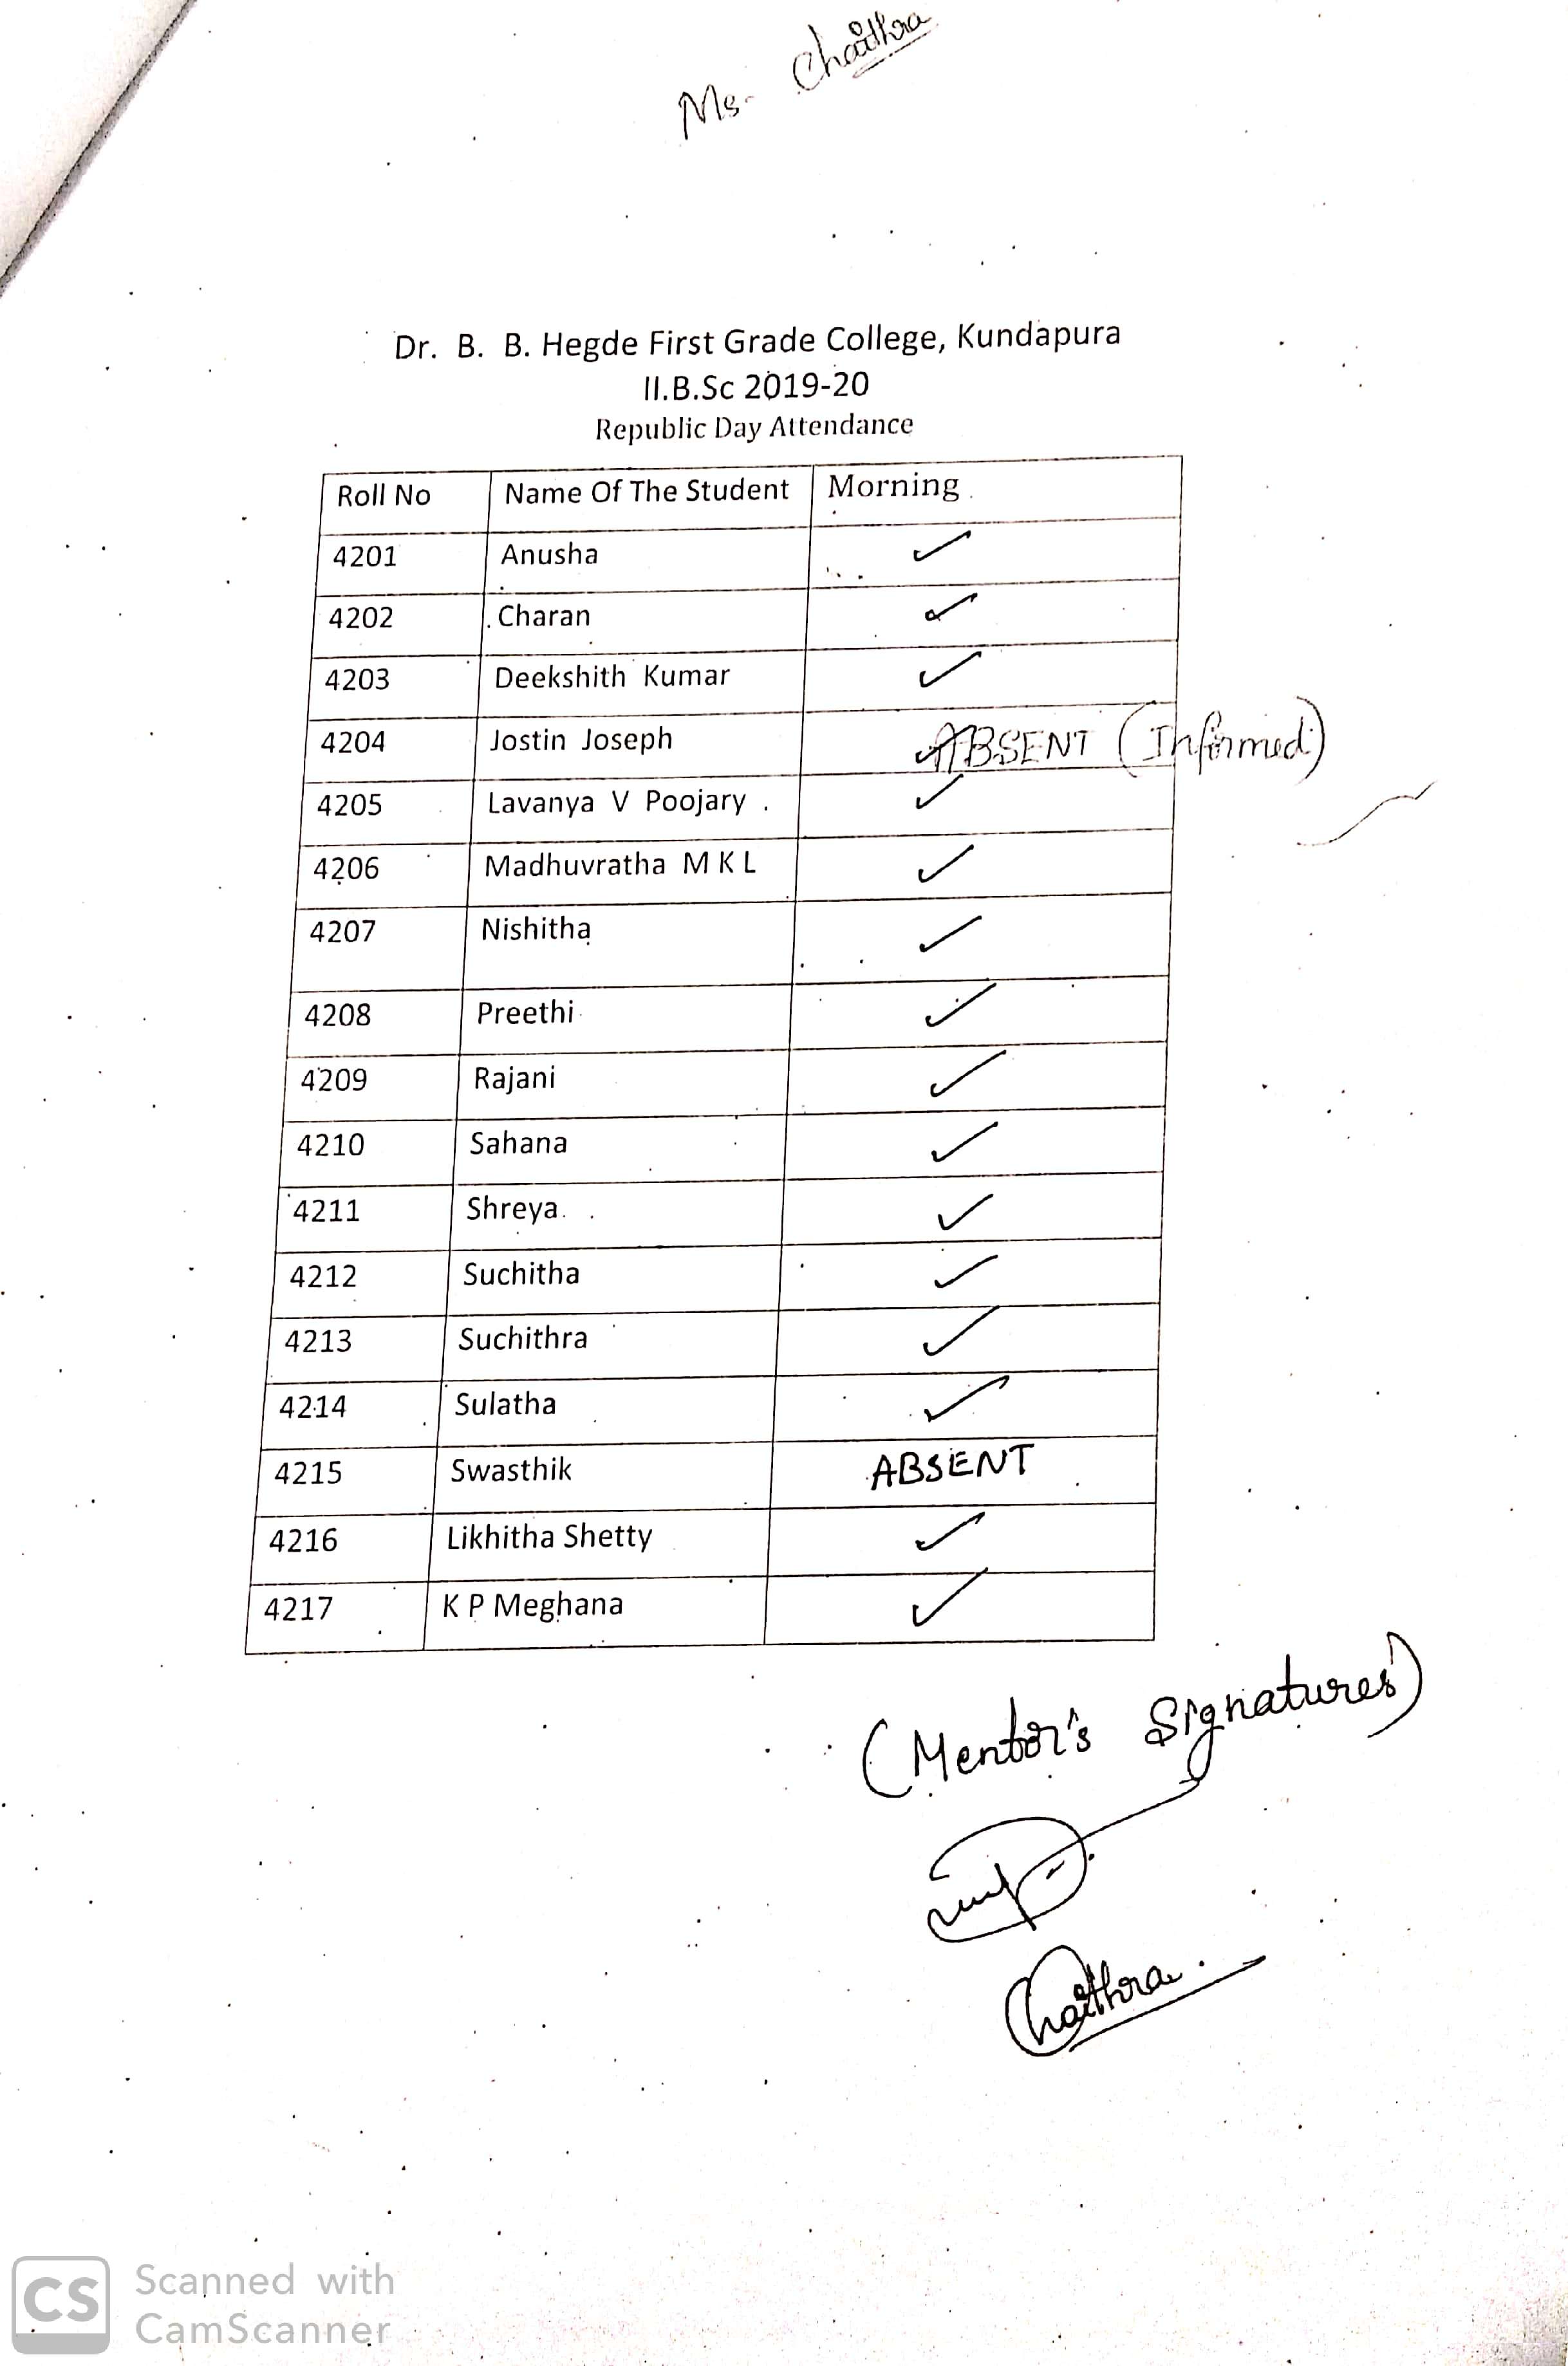 Ms. Chaithra
Dr. B. B. Hegde First Grade College, Kundapura
II.B.Sc 2019-20
Republic Day Attendance
Roll No Name Of The Student Morning
4201 Anusha ✓
4202 Charan ✓
4203 Deekshith Kumar ✓
4204 Jostin Joseph ABSENT (Informed)
4205 Lavanya V Poojary ✓
4206 Madhuvratha M K L ✓
4207 Nishitha ✓
4208 Preethi ✓
4209 Rajani ✓
4210 Sahana ✓
4211 Shreya ✓
4212 Suchitha ✓
4213 Suchithra ✓
4214 Sulatha ✓
4215 Swasthik ABSENT
4216 Likhitha Shetty ✓
4217 K P Meghana ✓
(Mentor's Signatures)
Chaithra.
CS Scanned with
CamScanner